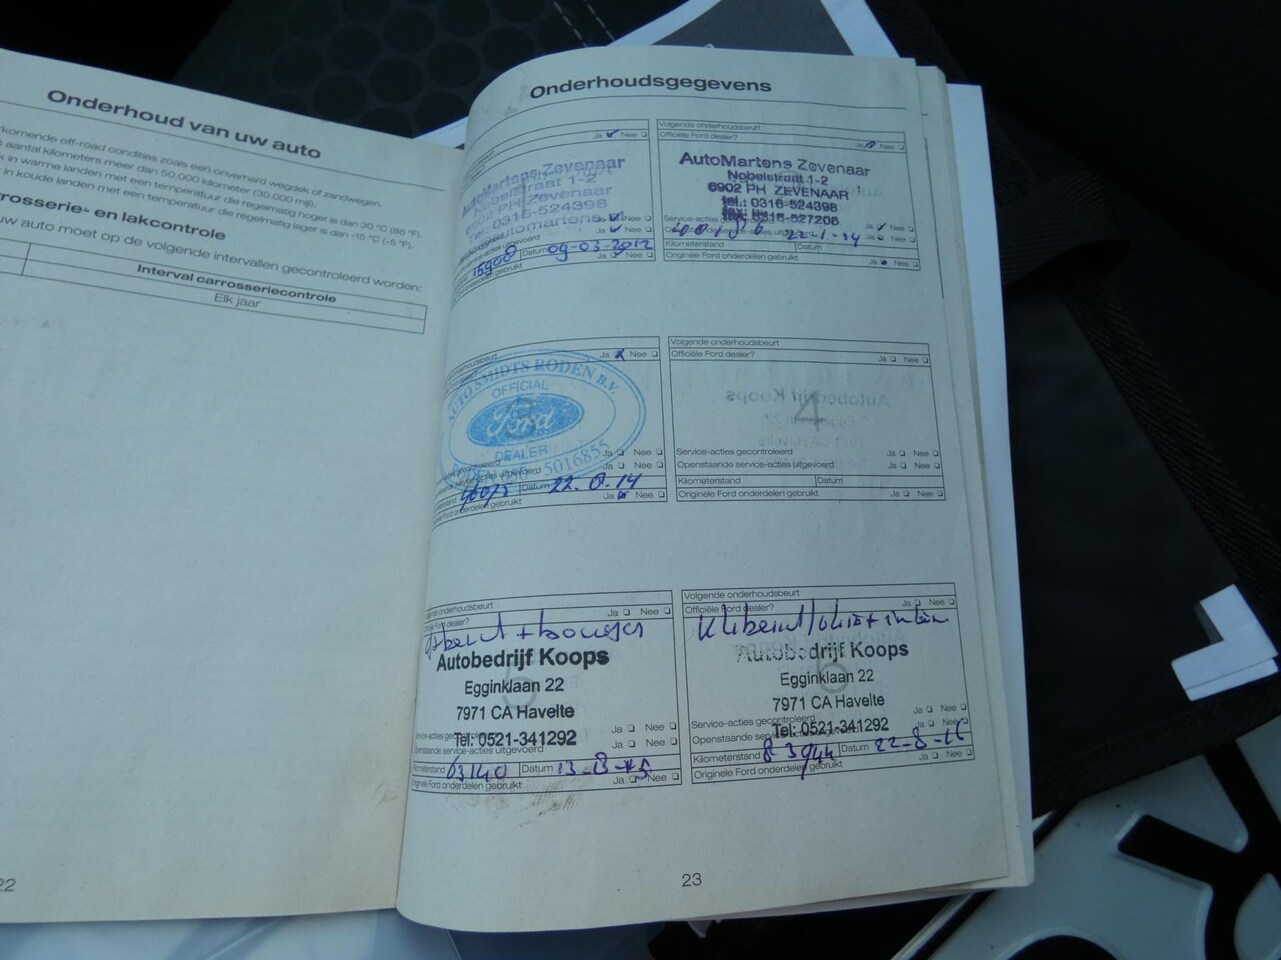 Onderhoud van uw auto
komende off-road condities zoals een onverhard wegdek of zandwegen.
aantal kilometers meer dan 50.000 kilometer (30.000 mijl).
k in warme landen met een temperatuur die regelmatig hoger is dan 30 °C (86 °F).
in koude landen met een temperatuur die regelmatig lager is dan -15 °C (-5 °F).
rrosserie- en lakcontrole
uw auto moet op de volgende intervallen gecontroleerd worden:
Interval carrosseriecontrole
Elk jaar
22
Onderhoudsgegevens
Ja Nee
AutoMartens Zevenaar
Nobelstraat 1-2
6902 PH ZEVENAAR
Tel.: 0316-524398
automartens
Ja Nee
Ja Nee
service-acties uitgevoerd
15908 Datum 09-03-2012
gebruikt Ja Nee
Volgende onderhoudsbeurt
Officiële Ford dealer? Ja Nee
AutoMartens Zevenaar
Nobelstraat 1-2
6902 PH ZEVENAAR
tel.: 0316-524398
fax: 0316-527206
Service-acties Ja Nee
22-1-14 Ja Nee
Kilometerstand Datum
Originele Ford onderdelen gebruikt Ja Nee
onderhoudsbeurt
Ja Nee
AUTO SMIDTS RODEN B.V.
OFFICIAL
Ford
DEALER
RODEN 050 - 5016855
Ja Nee
service-acties uitgevoerd Ja Nee
Datum 22-8-14
Ford onderdelen gebruikt Ja Nee
Volgende onderhoudsbeurt
Officiële Ford dealer? Ja Nee
Service-acties gecontroleerd Ja Nee
Openstaande service-acties uitgevoerd Ja Nee
Kilometerstand Datum
Originele Ford onderdelen gebruikt Ja Nee
onderhoudsbeurt
Ford dealer? Ja Nee
Autobedrijf Koops
Egginklaan 22
7971 CA Havelte
Tel: 0521-341292
Service-acties gecontroleerd Ja Nee
Openstaande service-acties uitgevoerd Ja Nee
Kilometerstand 63140 Datum 13-8-15
Originele Ford onderdelen gebruikt Ja Nee
Volgende onderhoudsbeurt
Officiële Ford dealer? Ja Nee
Autobedrijf Koops
Egginklaan 22
7971 CA Havelte
Tel: 0521-341292
Service-acties gecontroleerd Ja Nee
Openstaande service-acties uitgevoerd Ja Nee
Kilometerstand 83944 Datum 22-8-16
Originele Ford onderdelen gebruikt Ja Nee
23